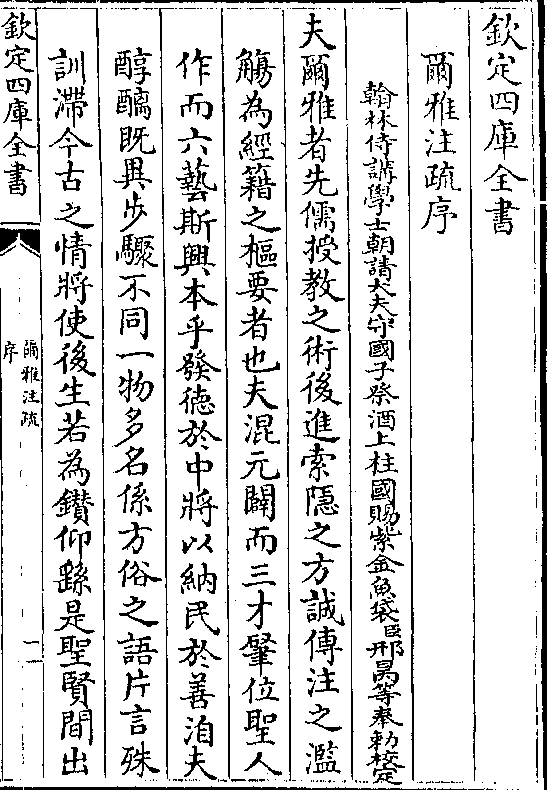 欽定四庫全書
爾雅注疏序
翰林侍講學士朝請大夫守國子祭酒上柱國賜紫金魚袋臣邢昺等奉勅校定
夫爾雅者先儒授教之術後進索隱之方誠傳注之濫
觴為經籍之樞要者也夫混元闢而三才肇位聖人
作而六藝斯興本乎發德於中將以納民於善洎夫
醇醨既異步驟不同一物多名係方俗之語片言殊
訓滯今古之情將使後生若為鑽仰繇是聖賢間出
欽定四庫全書
爾雅注疏
序
一